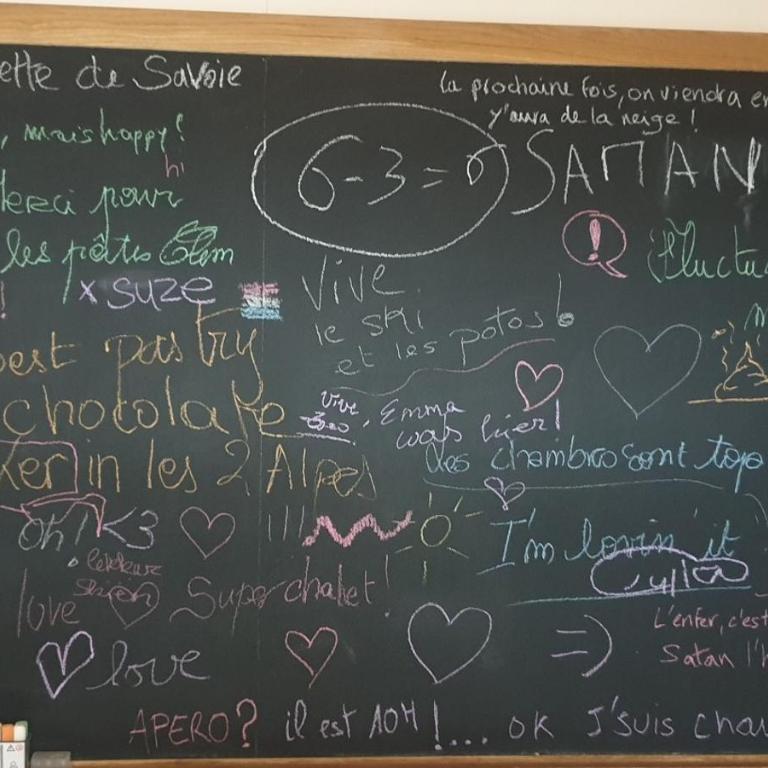 ette de Savoie
la prochaine fois, on viendra en
y'aura de la neige !
, mais happy!
hi
6-3=6
SATAN
Merci pour
les pâtes Clem
!
Fluctu
x suze
Vive
le ski
et les potos!
best pastry
chocolate
Vive
Emma
was hier!
ker in les 2 Alpes
les chambres sont top
oh! <3
I'm lovin' it
love
Super chalet!
love
L'enfer, c'est
Satan l'h
=)
APERO? il est 10H!... ok J'suis chau